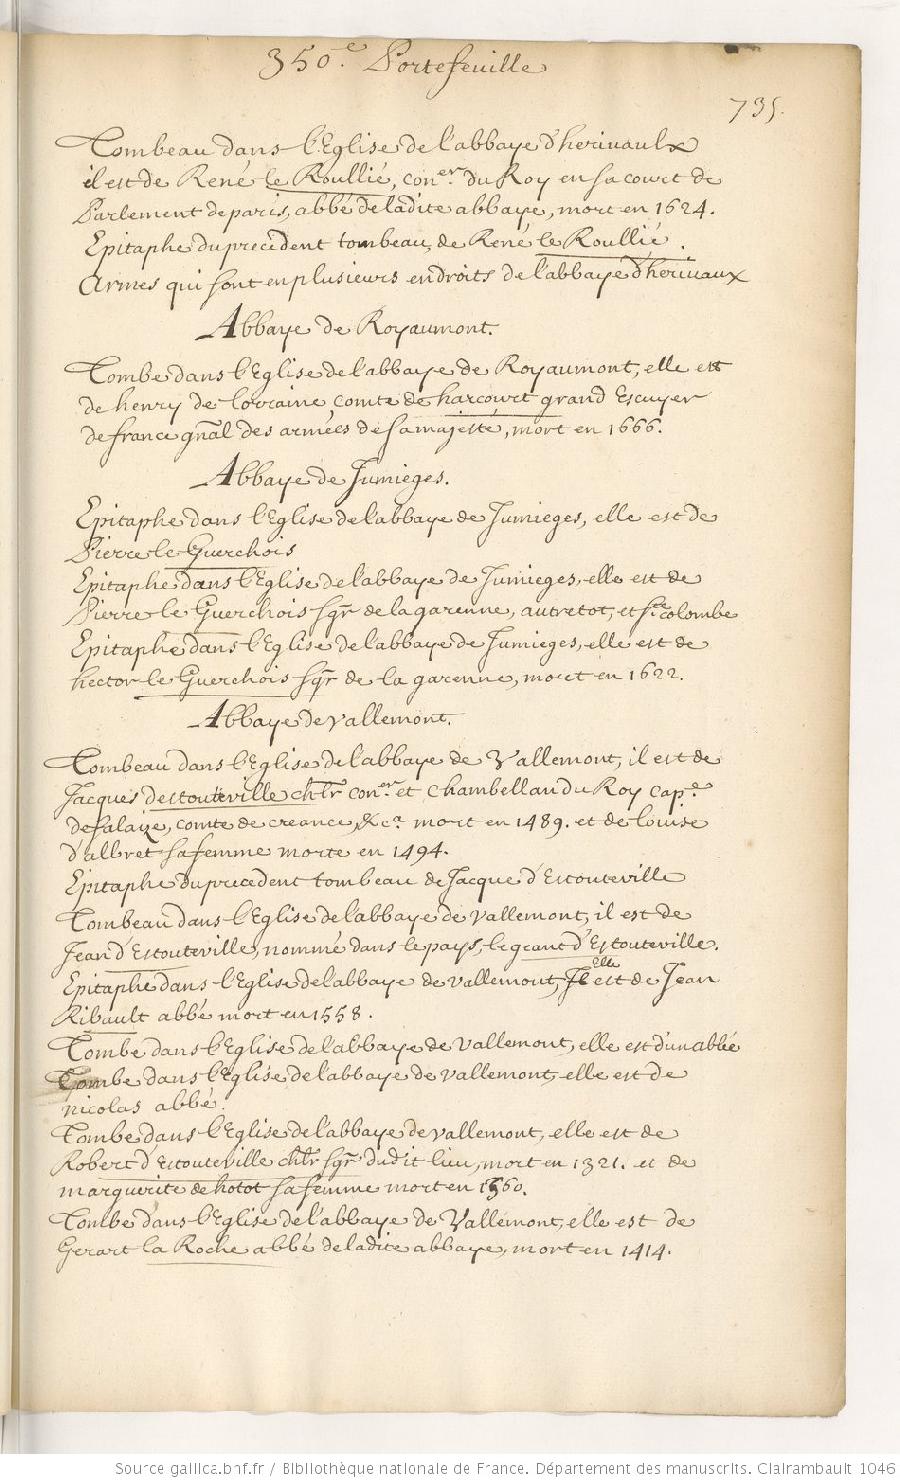 350.e Portefeuille
735.
Tombeau dans l'Eglise de l'abbaye d'herivaulx
il est de René le Roullié, con.er du Roy en sa court de
Parlement de paris, abbé de ladite abbaye, mort en 1624.
Epitaphe du précédent tombeau, de René le Roullié.
Armes qui sont en plusieurs endroits de l'abbaye d'herivaux
Abbaye de Royaumont.
Tombe dans l'Eglise de l'abbaye de Royaumont, elle est
de henry de lorraine comte de harcourt grand Escuyer
de france gñal des armées de sa majesté, mort en 1666.
Abbaye de Jumieges.
Epitaphe dans l'Eglise de l'abbaye de Jumieges, elle est de
Pierre le Guerchois
Epitaphe dans l'Eglise de l'abbaye de Jumieges, elle est de
Pierre le Guerchois sgr de la garenne, autretot, et ste colombe
Epitaphe dans l'Eglise de l'abbaye de Jumieges, elle est de
hector le Guerchois sgr de la garenne, mort en 1622.
Abbaye de vallemont.
Tombeau dans l'Eglise de l'abbaye de Vallemont, il est de
Jacques destouteville chlr con.er et Chambellan du Roy cap.e
de falaize, comte de creance, &c.a mort en 1489. et de louise
d'albret sa femme morte en 1494.
Epitaphe du precedent tombeau de Jacque d'Estouteville
Tombeau dans l'Eglise de l'abbaye de vallemont, il est de
Jean d'Estouteville, nommé dans le pays, le geant d'Estouteville.
Epitaphe dans l'Eglise de l'abbaye de vallemont, elle est de Jean
Ribault abbé mort en 1558.
Tombe dans l'Eglise de l'abbaye de vallemont, elle est d'un abbé
Tombe dans l'Eglise de l'abbaye de vallemont, elle est de
nicolas abbé.
Tombe dans l'Eglise de l'abbaye de vallemont, elle est de
Robert d'Estouteville chlr sgr dudit lieu, mort en 1321. et de
marguerite de hotot sa femme mort en 1360.
Tombe dans l'Eglise de l'abbaye de Vallemont, elle est de
Gerart la Roche abbé de ladite abbaye, mort en 1414.
Source gallica.bnf.fr / Bibliothèque nationale de France. Département des manuscrits. Clairambault 1046